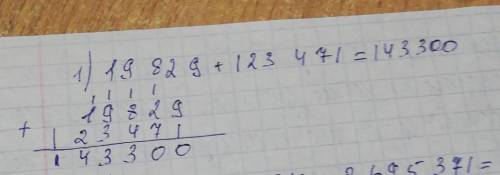 1) 19 829 + 123 471 = 143300
1 1 1 1
19829
+
123471
143300
5 371=